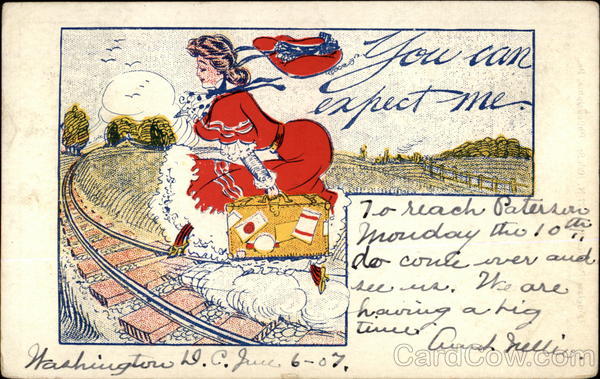 You can
expect me.
To reach Paterson
Monday the 10th
do come over and
see us. We are
having a big
time
Aunt Nellie.
Washington D.C. June 6-07.
CardCow.com